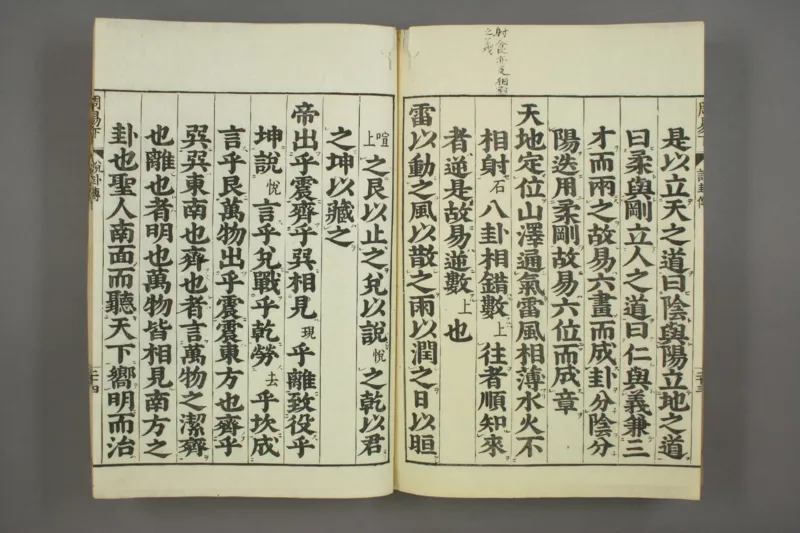 是以立天之道曰陰與陽立地之道
曰柔與剛立人之道曰仁與義兼三
才而兩之故易六畫而成卦分陰分
陽迭用柔剛故易六位而成章
天地定位山澤通氣雷風相薄水火不
相射石八卦相錯數上往者順知來
者逆是故易逆數上也
雷以動之風以散之雨以潤之日以晅
喧上之艮以止之兌以說悅之乾以君
之坤以藏之
帝出乎震齊乎巽相見現乎離致役乎
坤說悅言乎兌戰乎乾勞去乎坎成
言乎艮萬物出乎震震東方也齊乎
巽巽東南也齊也者言萬物之潔齊
也離也者明也萬物皆相見南方之
卦也聖人南面而聽天下嚮明而治
周易下
說卦傳
二十四
周易下
說卦傳
二十三